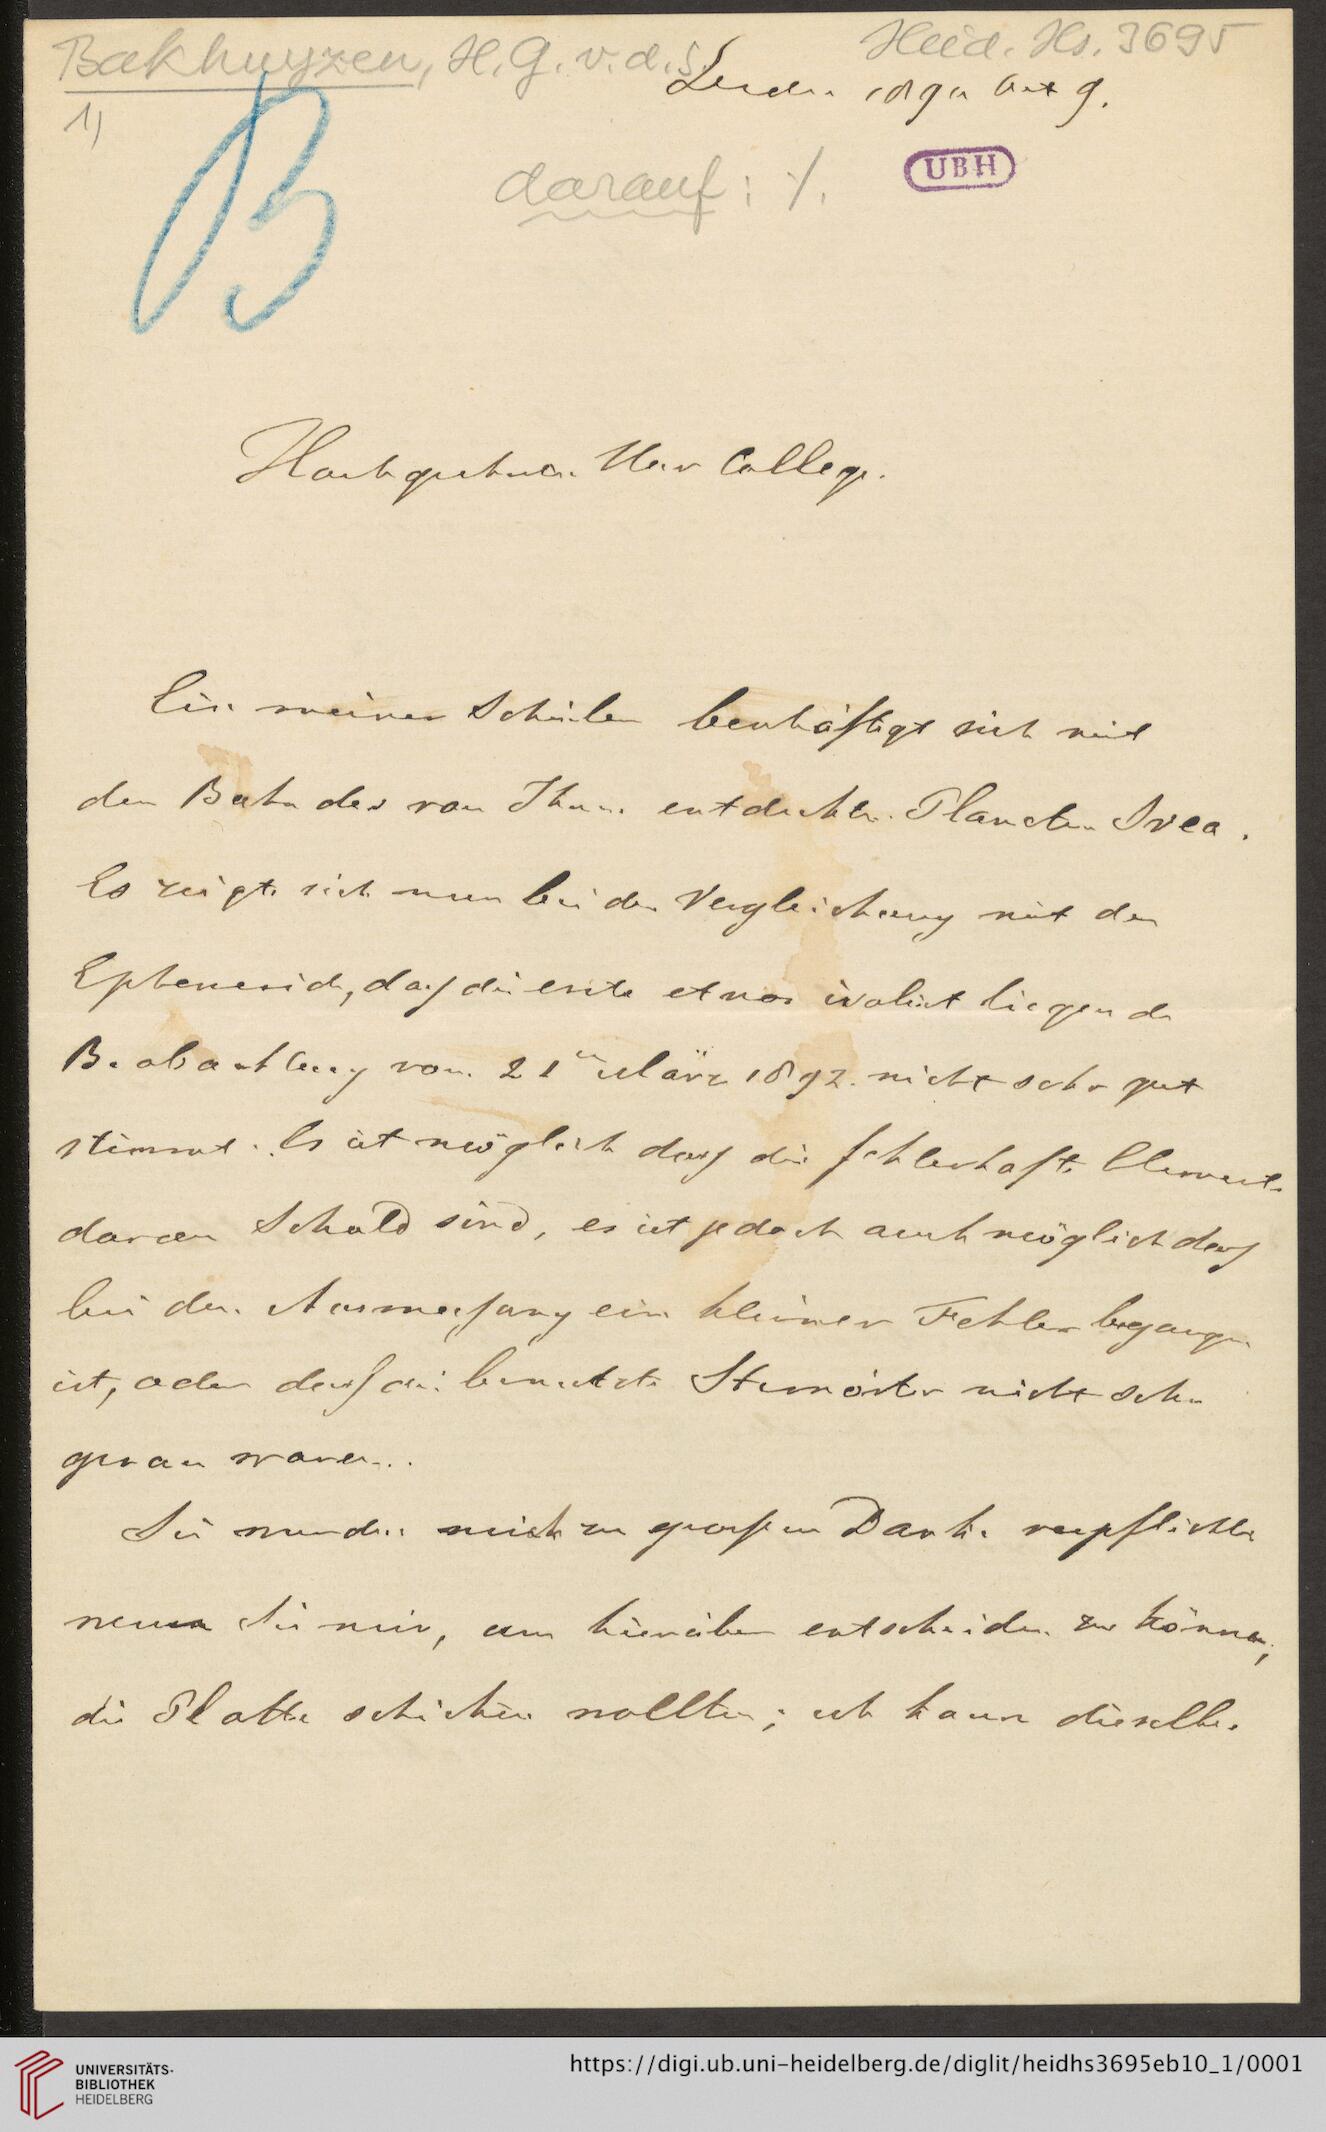 Bakhuyzen, H. G. v. d. S.
Heid. Hs. 3695
1)
Leiden Oct 9.
B
darauf: ./.
UBH
Hochgeehrter Herr College.
Ein meiner Schüler beschäftigt sich mit
der Bahn des von Ihnen entdeckten Planeten Svea.
Es zeigte sich nun bei der Vergleichung mit der
Ephemeride, dass die erste etwas isolirt liegende
Beobachtung vom 21en März 1892 nicht sehr gut
stimmt. Es ist möglich dass die fehlerhafte Elemente
daran Schuld sind, es ist jedoch auch möglich dass
bei der Ausmessung ein kleiner Fehler begangen
ist, oder dass die benutzte Sternörter nicht sehr
genau waren.
Sie würden mich zu grossem Danke verpflichten
wenn Sie mir, um hierüber entscheiden zu können,
die Platte schicken wollten; ich kann dieselbe
UNIVERSITÄTS-
BIBLIOTHEK
HEIDELBERG
https://digi.ub.uni-heidelberg.de/diglit/heidhs3695eb10_1/0001